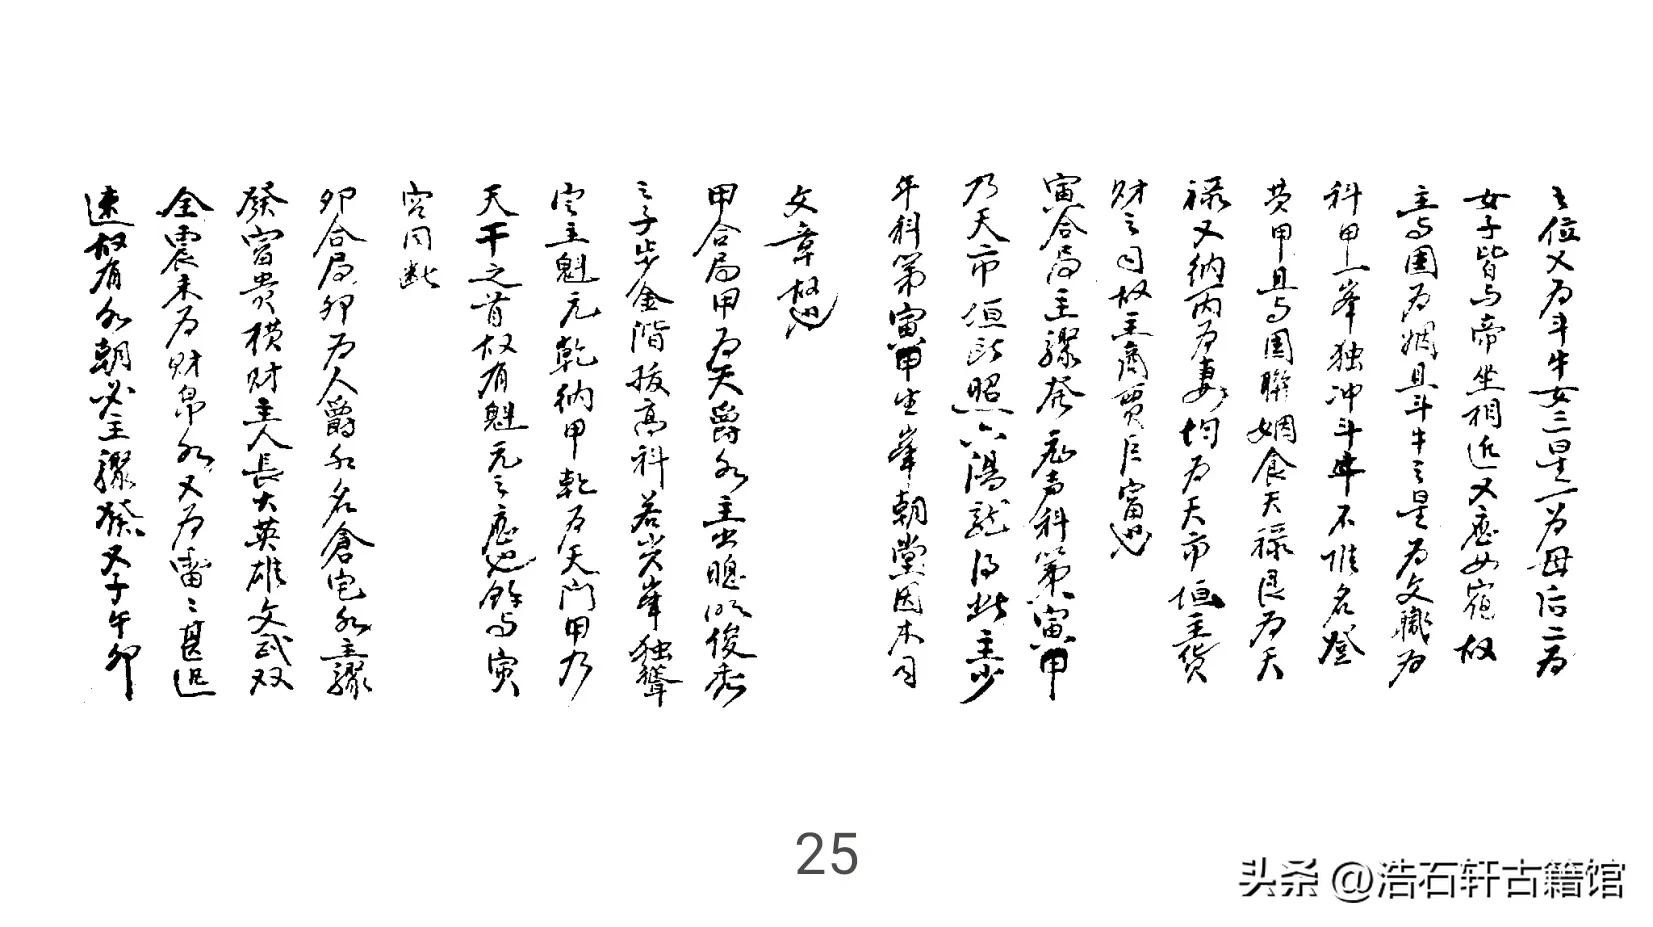 之位又为斗牛女三星一为母后二为
女子皆与帝坐相近又应女宿故
主与国为姻且斗牛之星为文职为
科甲一峯独冲斗牛不惟名登
黄甲且与国联姻食天禄艮为天
禄又纳丙为妻均为天市垣主货
财之司故主商贾巨富也
寅合局主骤发应寿科第寅甲
乃天市垣比照六阳龙得此主少
年科第寅甲生峯朝堂因木司
文章故也
甲合局甲为天爵水主出聪明俊秀
之子步金阶拔高科若尖峯独耸
定主魁元乾纳甲乾为天门甲乃
天干之首故有魁元之应也馀与寅
宫同断
卯合局卯为人爵水名仓宅水主骤
發富贵横财主人長大英雄文武双
全震未为财帛水又为雷之甚迅
速故有水朝必主骤發又子午卯
25
头条 @浩石轩古籍馆